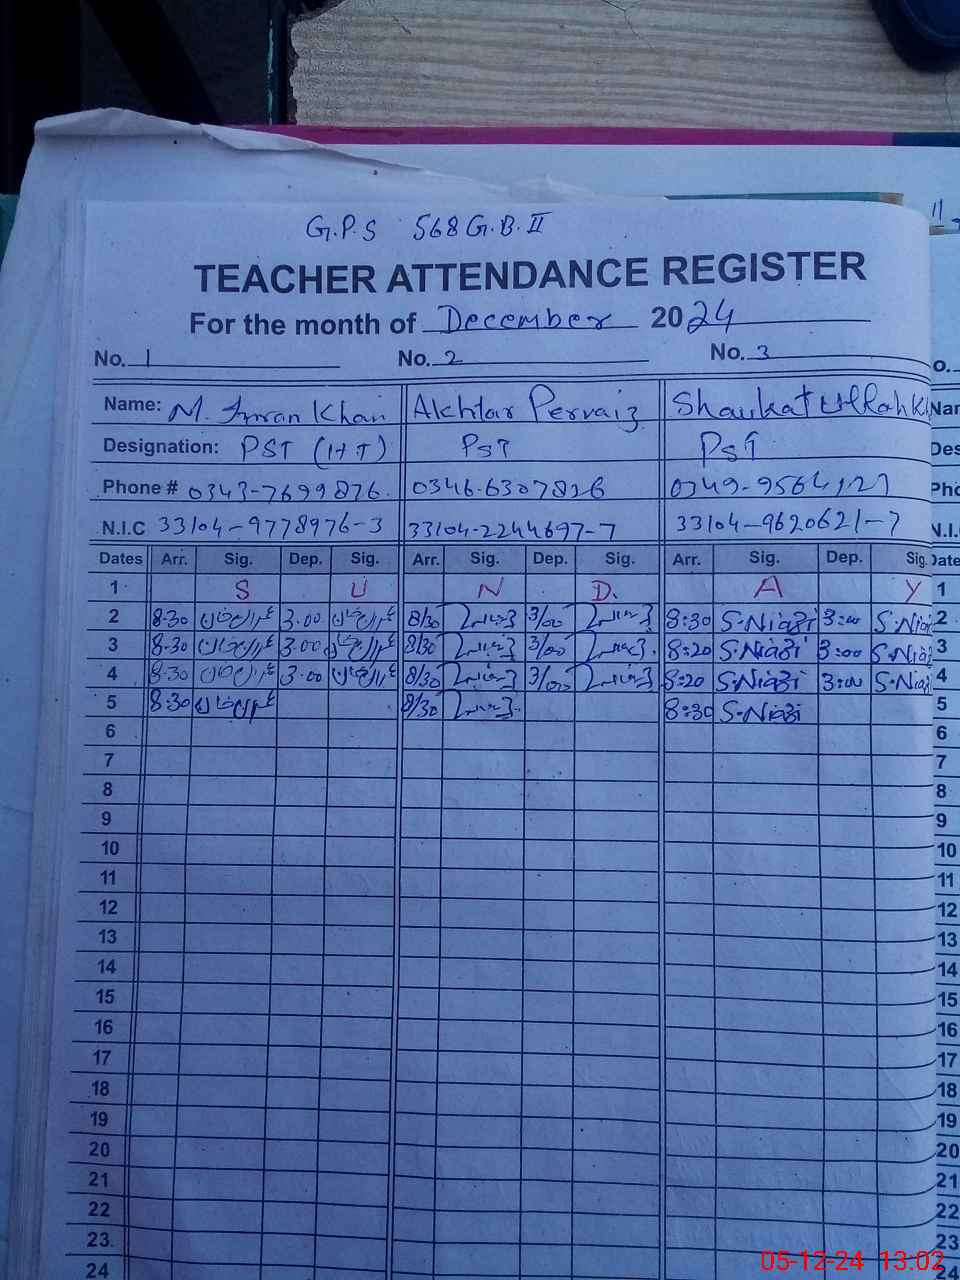 G.P.S 568 G.B. II
TEACHER ATTENDANCE REGISTER
For the month of December 2024
No. 1 No. 2 No. 3
Name: M. Imran Khan Akhtar Pervaiz Shaukat Ullah Kh
Designation: PST (HT) PST PST
Phone # 0343-7699876 0346-6307826 0349-9564127
N.I.C 33104-9778976-3 33104-2244697-7 33104-9620621-7
Dates Arr. Sig. Dep. Sig. Arr. Sig. Dep. Sig. Arr. Sig. Dep. Sig.
1 S U N D. A Y
2 8-30 عمران خان 3.00 عمران خان 8/30 3/00 8:30 S.Niazi 3:00 S.Niazi
3 8-30 عمران خان 3.00 عمران خان 8/30 3/00 8:20 S.Niazi 3:00 S.Niazi
4 8-30 عمران خان 3.00 عمران خان 8/30 3/00 8:20 S.Niazi 3:00 S.Niazi
5 8-30 عمران خان 8/30 8:30 S.Niazi
6
7
8
9
10
11
12
13
14
15
16
17
18
19
20
21
22
23
24
05-12-24 13:02